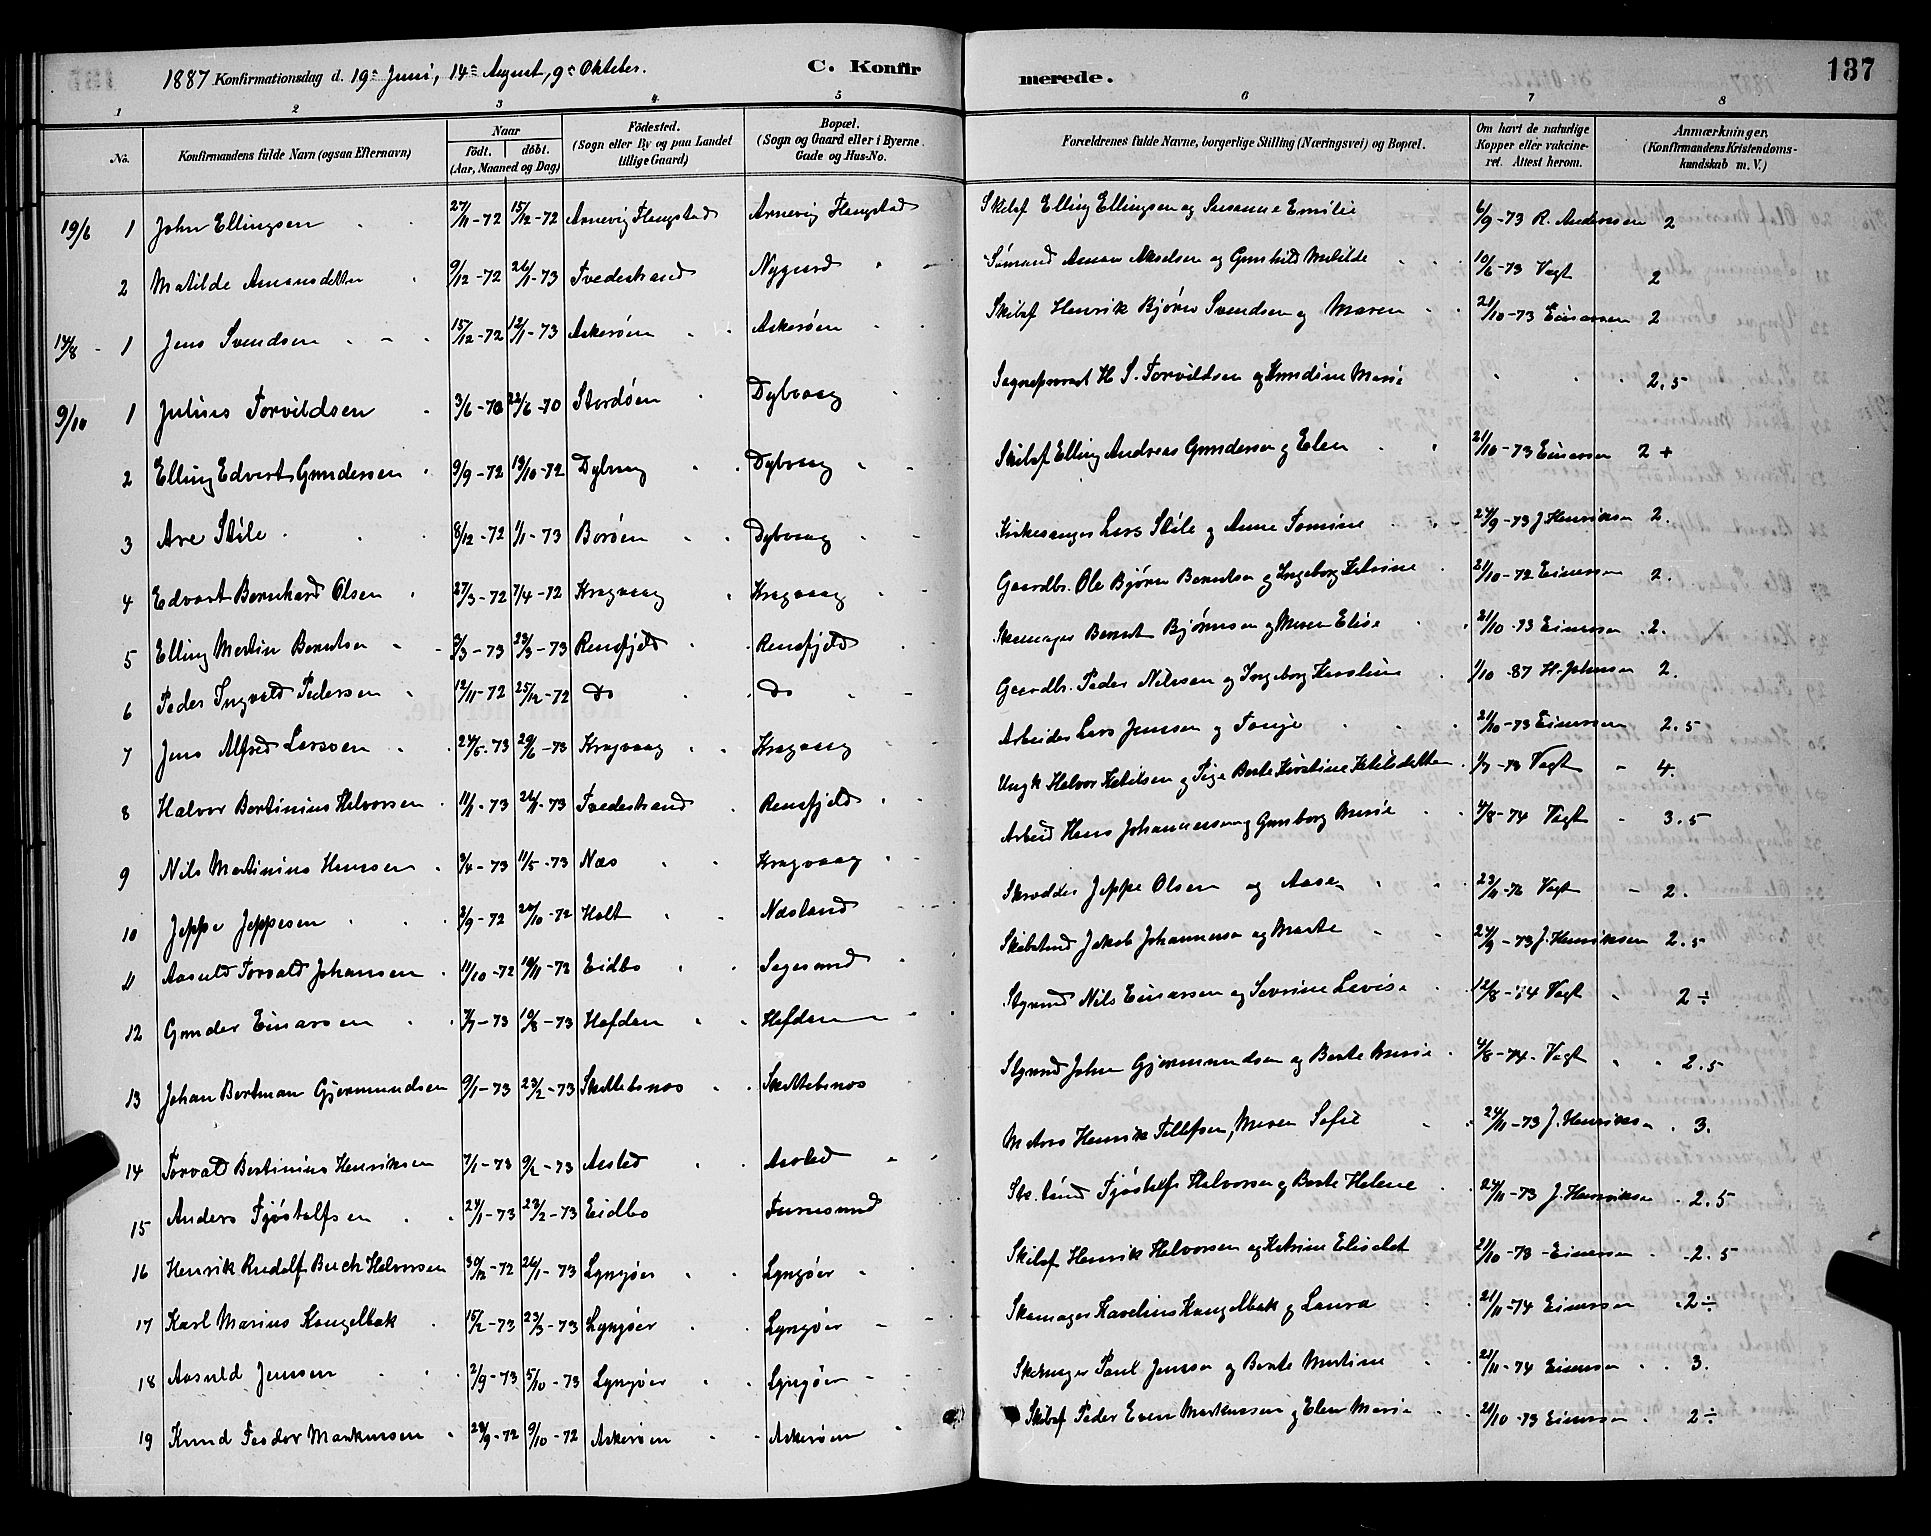 1887 Konfirmationsdag d. 19de Juni, 14de August, 9de Oktober. C. Konfirmerede. 137
1 2 3 4 5 6 7 8
No. Konfirmandens fulde Navn (ogsaa Efternavn) Naar födt. döbt. (Aar, Maaned og Dag) Födested. (Sogn eller By og paa Landet tillige Gaard) Bopæl. (Sogn og Gaard eller i Byerne Gade og Hus-No. Forældrenes fulde Navne, borgerlige Stilling (Næringsvei) og Bopæl. Om havt de naturlige Kopper eller vakcineret. Attest herom. Anmærkninger. (Konfirmandens Kristendomskundskab m. V.)
19/6 1 John Ellingsen 27/11-72 15/12-72 Arnevig Flangstad Arnevig Flangstad Skibsf Elling Ellingsen og Susanne Emilie 6/9-73 R. Andersen 2
2 Matilde Amansdatter 9/12-72 26/1-73 Tvedestrand Nygurd Sömand Aman Akselsen og Gunhild Matilde 10/6-73 Vogt 2
14/8 1 Jens Svendsen 15/12-72 12/1-73 Askeröen Askeröen Skibsf Henrik Bjørn Svendsen og Maren 21/10-73 Einersen 2
9/10 1 Julius Torvildsen 3/6-70 22/6-70 Stordöen Dybvaag Sogneprovst H S. Torvildsen og Kundine Marie 2.5
2 Elling Edvart Gundersen 9/9-72 13/10-72 Dybvaag Dybvaag Skibsf Elling Andreas Gundersen og Elen 21/10-73 Einersen 2 +
3 Are Stöle 8/12-72 1/1-73 Boröen Dybvaag Kirkesanger Lars Stöle og Anne Tomine 24/9-73 J Henriksen 2.
4 Edvart Bernhard Olsen 27/3-72 7/4-72 Kragvaag Kragvaag Gaardbr. Ole Bjørn Berntsen og Ingeborg Katrine 21/10-72 Einersen 2.
5 Elling Martin Berntsen 3/3-73 23/3-73 Rensfjeld Rensfjeld Skomager Bernt Bjørnsen og Maren Elise 21/10-73 Einersen 2.
6 Peder Ingvald Pedersen 12/11-72 25/12-72 do do Gaardbr. Peder Nilssen og Ingeborg Karoline 1/10-87 H. Johnsen 2.
7 Jens Alfred Larssen 24/5-73 29/6-73 Kragvaag Kragvaag Arbeider Lars Jensen og Tonje 21/10-73 Einersen 2.5
8 Halvor Bertinius Halvorsen 11/1-73 26/1-73 Tvedestrand Rensfjeld Ungk Halvor Ketilsen og Pige Berte Kirstine Ketilsdatter Vogt 4.
9 Nils Martinius Hansen 3/4-73 11/5-73 Næs Kragvaag Arbeid Hans Johannessen og Gunborg Marie 4/8-74 Vogt 3.5
10 Jeppe Jeppesen 3/9-72 20/10-72 Holt Næsland Skrædder Jeppe Olsen og Aase 23/11-76 Vogt 2.
11 Aasuld Torvald Johansen 11/10-72 10/11-72 Eidbo Sagesund Skibstmd Jakob Johannesen og Marte 24/9-73 J. Henriksen 2.5
12 Gunder Einarsen 7/7-73 10/8-73 Hafdan Hafdan Styrmd Nils Einarsen og Severine Lovise 12/8-74 Vogt 2 ÷
13 Johan Bertman Gjermundsen 9/1-73 23/2-73 Skottebnæs Skottebnæs Styrmd John Gjermundsen og Berte Marie 4/8-74 Vogt 2.5
14 Torvald Bertinius Henriksen 7/1-73 9/2-73 Aasted Aasted Matros Henrik Tellefsen, Maren Sofie 24/11-73 J. Henriksen 3.
15 Anders Fjöstelfsen 24/1-73 23/2-73 Eidbo Furusund Sk. tmd Fjöstelf Halvorsen og Berte Helene 24/11-73 J. Henriksen 2.5
16 Henrik Rudolf Buch Halvorsen 30/12-72 26/1-73 Lyngöer Lyngöer Skibsf Henrik Halvorsen og Katrine Elisabet 21/10-73 Einersen 2.5
17 Karl Marius Kangelbak 15/2-73 23/3-73 Lyngöer Lyngöer Skomager Karelius Kangelbak og Laura 21/11-74 Einersen 2 ÷
18 Aasuld Jensen 2/9-73 5/10-73 Lyngöer Lyngöer Skomager Paul Jensen og Berte Martine 21/11-74 Einersen 3.
19 Knud Teodor Markussen 29/9-72 9/10-72 Askeröen Askeröen Skibsf Peder Even Markussen og Elen Marie 21/10-73 Einersen 2 ÷